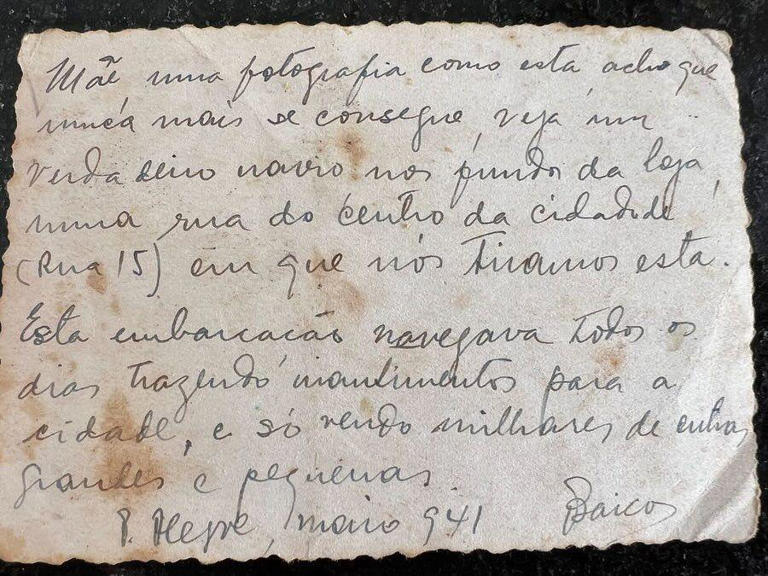 Mãe uma fotografia como esta, acho que
nunca mais se consegue, veja um
verdadeiro navio nos fundos da loja,
numa rua do centro da cidade
(Rua 15) em que nós tiramos esta.
Esta embarcacão navegava todos os
dias trazendo mantimentos para a
cidade, e só vendo milhares de outras
grandes e pequenas.
P. Alegre, maio 941